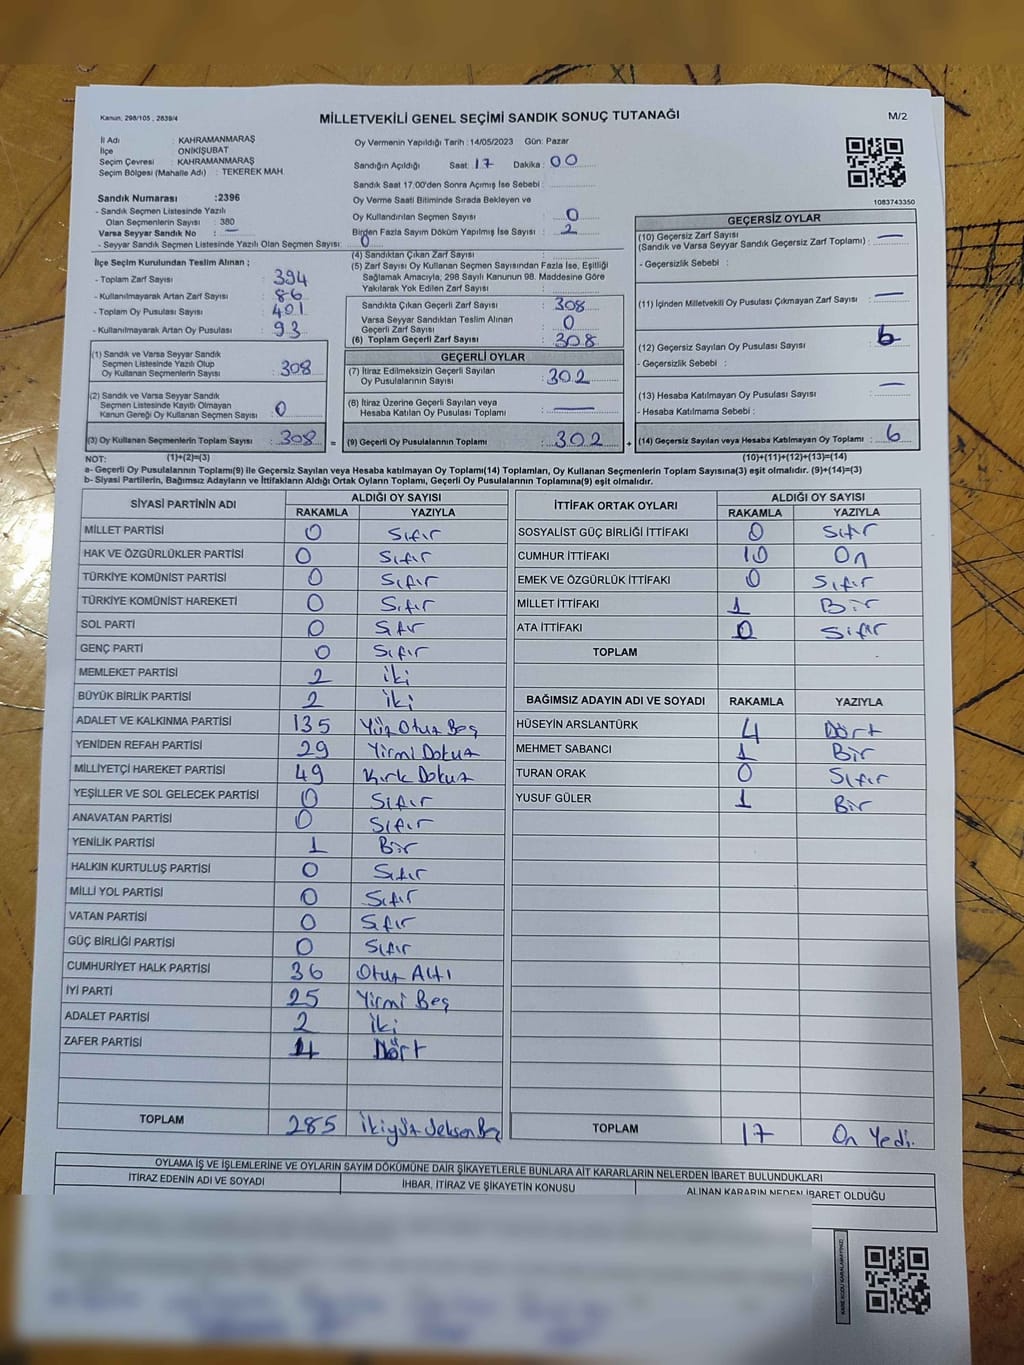 Kanun, 298/105 , 2839/4
MİLLETVEKİLİ GENEL SEÇİMİ SANDIK SONUÇ TUTANAĞI
M/2
İl Adı : KAHRAMANMARAŞ
İlçe : ONİKİŞUBAT
Seçim Çevresi : KAHRAMANMARAŞ
Seçim Bölgesi (Mahalle Adı) : TEKEREK MAH.
Sandık Numarası :2396
- Sandık Seçmen Listesinde Yazılı
Olan Seçmenlerin Sayısı : 380
Varsa Seyyar Sandık No : —
- Seyyar Sandık Seçmen Listesinde Yazılı Olan Seçmen Sayısı: 0
Oy Vermenin Yapıldığı Tarih : 14/05/2023 Gün: Pazar
Sandığın Açıldığı Saat: 17 Dakika : 00
Sandık Saat 17.00'den Sonra Açımış İse Sebebi :
Oy Verme Saati Bitiminde Sırada Bekleyen ve
Oy Kullandırılan Seçmen Sayısı : 0
Birden Fazla Sayım Döküm Yapılmış İse Sayısı : 2
1083743350
İlçe Seçim Kurulundan Teslim Alınan ;
- Toplam Zarf Sayısı : 394
- Kullanılmayarak Artan Zarf Sayısı : 86
- Toplam Oy Pusulası : 401
- Kullanılmayarak Artan Oy Pusulası : 93
(1) Sandık ve Varsa Seyyar Sandık
Seçmen Listesinde Yazılı Olup
Oy Kullanan Seçmenlerin Sayısı : 308
(2) Sandık ve Varsa Seyyar Sandık
Seçmen Listesinde Kayıtlı Olmayan
Kanun Gereği Oy Kullanan Seçmen Sayısı : 0
(3) Oy Kullanan Seçmenlerin Toplam Sayısı : 308 =
(4) Sandıktan Çıkan Zarf Sayısı :
(5) Zarf Sayısı Oy Kullanan Seçmen Sayısından Fazla İse, Eşitliği
Sağlamak Amacıyla; 298 Sayılı Kanunun 98. Maddesine Göre
Yakılarak Yok Edilen Zarf Sayısı :
Sandıkta Çıkan Geçerli Zarf Sayısı : 308
Varsa Seyyar Sandıktan Teslim Alınan
Geçerli Zarf Sayısı : 0
(6) Toplam Geçerli Zarf Sayısı : 308
GEÇERLİ OYLAR
(7) İtiraz Edilmeksizin Geçerli Sayılan
Oy Pusulalarının Sayısı : 302
(8) İtiraz Üzerine Geçerli Sayılan veya
Hesaba Katılan Oy Pusulası Toplamı : —
(9) Geçerli Oy Pusulalarının Toplamı : 302 +
GEÇERSİZ OYLAR
(10) Geçersiz Zarf Sayısı
(Sandık ve Varsa Seyyar Sandık Geçersiz Zarf Toplamı) : —
- Geçersizlik Sebebi :
(11) İçinden Milletvekili Oy Pusulası Çıkmayan Zarf Sayısı : —
(12) Geçersiz Sayılan Oy Pusulası Sayısı : 6
- Geçersizlik Sebebi :
(13) Hesaba Katılmayan Oy Pusulası Sayısı : —
- Hesaba Katılmama Sebebi :
(14) Geçersiz Sayılan veya Hesaba Katılmayan Oy Toplamı : 6
NOT: (1)+(2)=(3) (10)+(11)+(12)+(13)=(14)
a- Geçerli Oy Pusulalarının Toplamı(9) ile Geçersiz Sayılan veya Hesaba katılmayan Oy Toplamı(14) Toplamları, Oy Kullanan Seçmenlerin Toplam Sayısına(3) eşit olmalıdır. (9)+(14)=(3)
b- Siyasi Partilerin, Bağımsız Adayların ve İttifakların Aldığı Ortak Oyların Toplamı, Geçerli Oy Pusulalarının Toplamına(9) eşit olmalıdır.
SİYASİ PARTİNİN ADI ALDIĞI OY SAYISI
RAKAMLA YAZIYLA
MİLLET PARTİSİ 0 Sıfır
HAK VE ÖZGÜRLÜKLER PARTİSİ 0 Sıfır
TÜRKİYE KOMÜNİST PARTİSİ 0 Sıfır
TÜRKİYE KOMÜNİST HAREKETİ 0 Sıfır
SOL PARTİ 0 Sıfır
GENÇ PARTİ 0 Sıfır
MEMLEKET PARTİSİ 2 iki
BÜYÜK BİRLİK PARTİSİ 2 iki
ADALET VE KALKINMA PARTİSİ 135 Yüz Otuz Beş
YENİDEN REFAH PARTİSİ 29 Yirmi Dokuz
MİLLİYETÇİ HAREKET PARTİSİ 49 Kırk Dokuz
YEŞİLLER VE SOL GELECEK PARTİSİ 0 Sıfır
ANAVATAN PARTİSİ 0 Sıfır
YENİLİK PARTİSİ 1 Bir
HALKIN KURTULUŞ PARTİSİ 0 Sıfır
MİLLİ YOL PARTİSİ 0 Sıfır
VATAN PARTİSİ 0 Sıfır
GÜÇ BİRLİĞİ PARTİSİ 0 Sıfır
CUMHURİYET HALK PARTİSİ 36 Otuz Altı
İYİ PARTİ 25 Yirmi Beş
ADALET PARTİSİ 2 iki
ZAFER PARTİSİ 4 Dört
TOPLAM 285 ikiyüz seksen Beş
İTTİFAK ORTAK OYLARI ALDIĞI OY SAYISI
RAKAMLA YAZIYLA
SOSYALİST GÜÇ BİRLİĞİ İTTİFAKI 0 Sıfır
CUMHUR İTTİFAKI 10 On
EMEK VE ÖZGÜRLÜK İTTİFAKI 0 Sıfır
MİLLET İTTİFAKI 1 Bir
ATA İTTİFAKI 0 Sıfır
TOPLAM
BAĞIMSIZ ADAYIN ADI VE SOYADI RAKAMLA YAZIYLA
HÜSEYİN ARSLANTÜRK 4 Dört
MEHMET SABANCI 1 Bir
TURAN ORAK 0 Sıfır
YUSUF GÜLER 1 Bir
TOPLAM 17 On Yedi.
OYLAMA İŞ VE İŞLEMLERİNE VE OYLARIN SAYIM DÖKÜMÜNE DAİR ŞİKAYETLERLE BUNLARA AİT KARARLARIN NELERDEN İBARET BULUNDUKLARI
İTİRAZ EDENİN ADI VE SOYADI İHBAR, İTİRAZ VE ŞİKAYETİN KONUSU ALINAN KARARIN NEDEN İBARET OLDUĞU